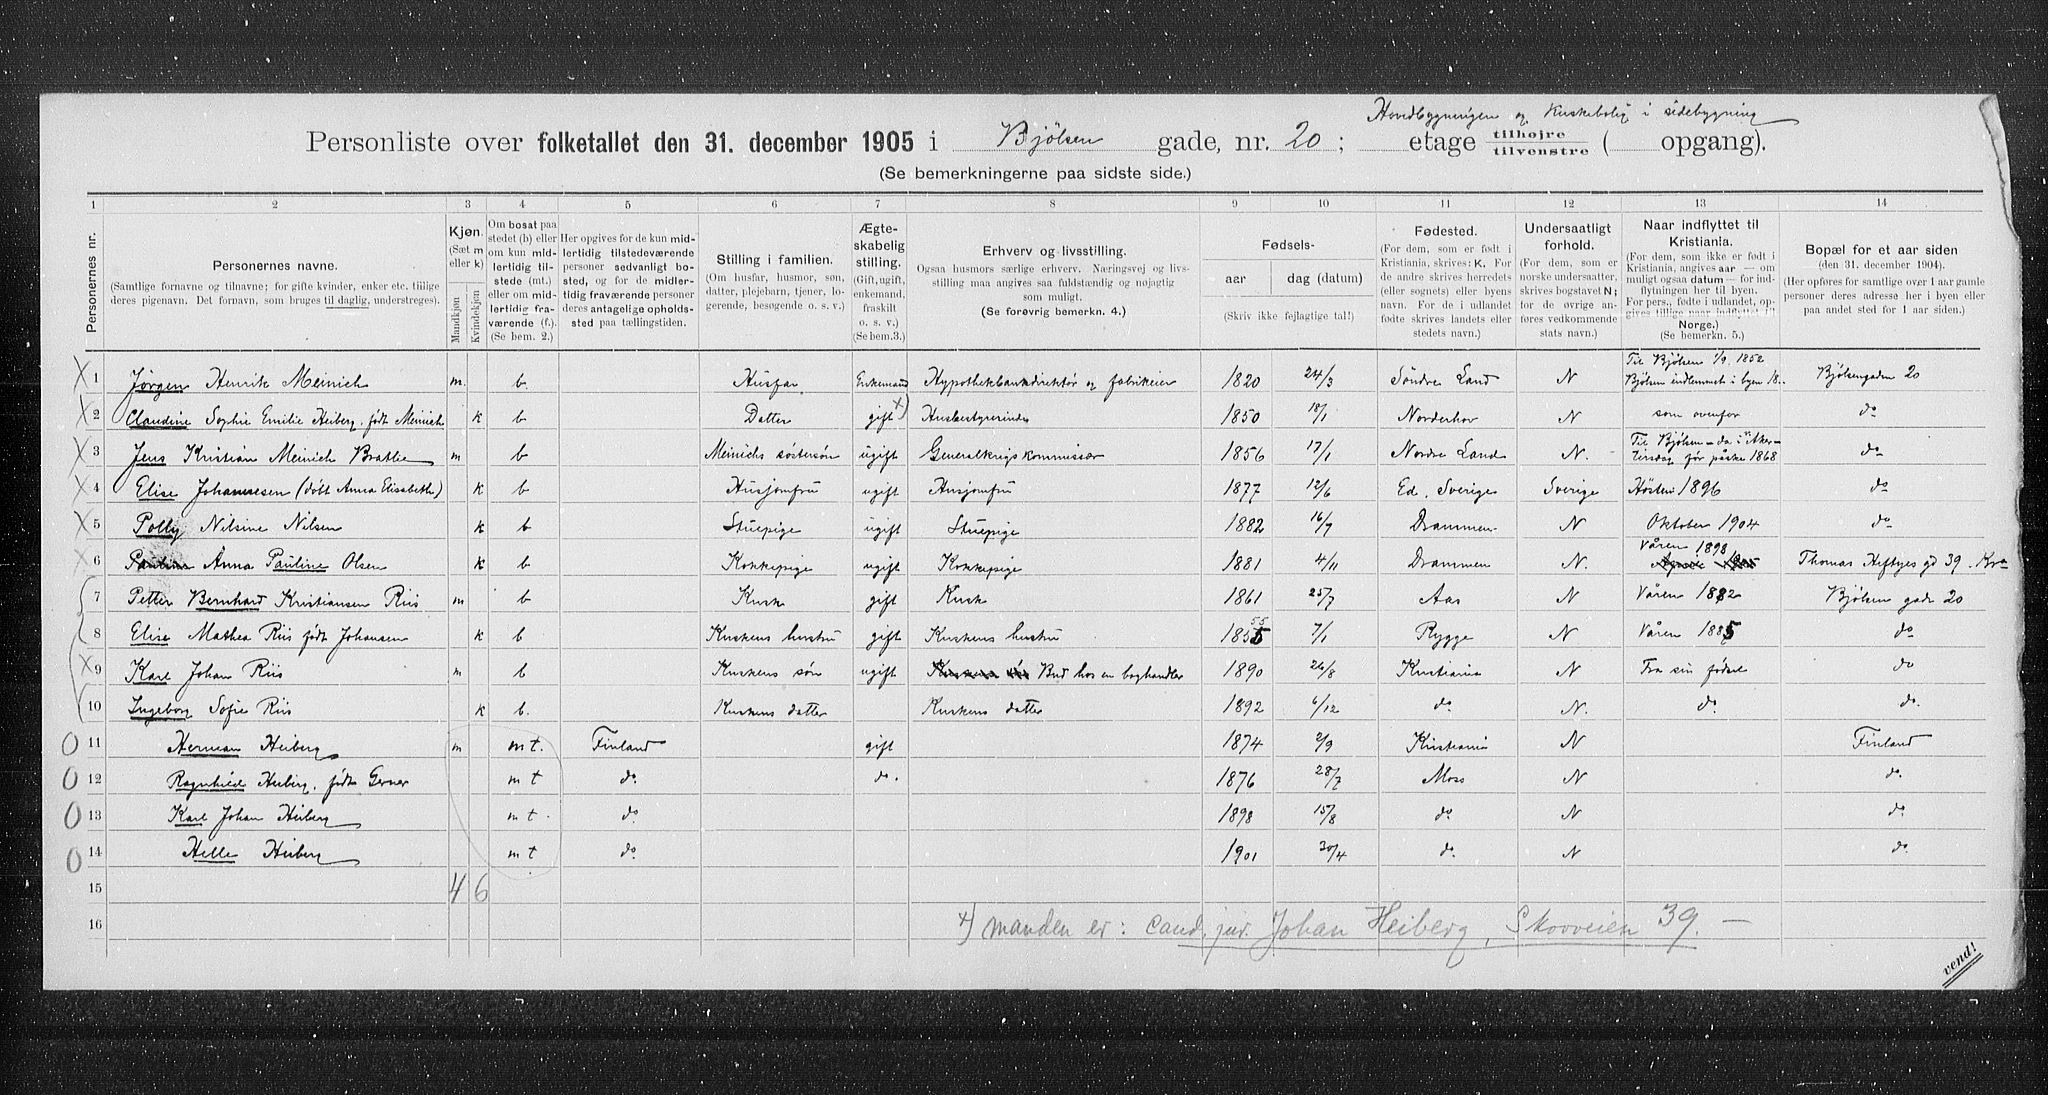 Hovedbygningen og Kuskebolig i sidebygning
Personliste over folketallet den 31. december 1905 i Bjølsen gade, nr. 20; etage tilhøjre tilvenstre ( opgang).
(Se bemerkningerne paa sidste side.)
1 2 3 4 5 6 7 8 9 10 11 12 13 14
Personernes nr.
Personernes navne.
(Samtlige fornavne og tilnavne; for gifte kvinder, enker etc. tillige deres pigenavn. Det fornavn, som bruges til daglig, understreges).
Kjøn.
(Sæt m eller k)
Mandkjøn
Kvindekjøn
Om bosat paa stedet (b) eller om kun midlertidig tilstede (mt.) eller om midlertidig fraværende (f.) (Se bem. 2.)
Her opgives for de kun midlertidig tilstedeværende personer sedvanligt bosted, og for de midlertidig fraværende personer deres antagelige opholdssted paa tællingstiden.
Stilling i familien.
(Om husfar, husmor, søn, datter, plejebarn, tjener, logerende, besøgende o. s. v.)
Ægteskabelig stilling.
(Gift, ugift, enkemand, fraskilt o. s. v.)
(Se bem. 3.)
Erhverv og livsstilling.
Ogsaa husmors særlige erhverv. Næringsvej og livsstilling maa angives saa fuldstændig og nøjagtig som muligt.
(Se forøvrig bemerkn. 4.)
Fødsels-
aar
dag (datum)
(Skriv ikke fejlagtige tal!)
Fødested.
(For dem, som er født i Kristiania, skrives: K. For de andre skrives herredets (eller sognets) eller byens navn. For de i udlandet fødte skrives landets eller stedets navn.)
Undersaatligt forhold.
(For dem, som er norske undersaatter, skrives bogstavet N; for de øvrige anføres vedkommende stats navn.)
Naar indflyttet til Kristiania.
(For dem, som ikke er født i Kristiania, angives aar — om muligt ogsaa datum — for indflytningen her til byen. For pers., fødte i udlandet, opgives tillige naar indflyttet til Norge.)
(Se bemerkn. 5.)
Bopæl for et aar siden
(den 31. december 1904).
(Her opføres for samtlige over 1 aar gamle personer deres adresse her i byen eller paa andet sted for 1 aar siden.)
X 1 Jørgen Henrik Meinich m. b. Husfar Enkemand Hypothekbankdirektør og fabrikeier 1820 24/3 Søndre Land N Til Bjølsen 1/9 1852 Bjølsen indlemmet i byen 18.. Bjølsengaden 20
X 2 Claudine Sophie Emilie Heiberg, født Meinich k b Datter gift +) Husbestyrerinde 1850 18/1 Norderhov N som ovenfor do
X 3 Jens Kristian Meinich Bratlie m b Meinichs søstersøn ugift Generalkrigskommissær 1856 17/1 Nordre Land N. Til Bjølsen – da i Aker – Tirsdag før påske 1868 do
X 4 Elise Johannesen (døbt Anna Elisabeth) k b Husjomfru ugift Husjomfru 1877 12/6 Ed, Sverige Sverige Høsten 1896 do
X 5 Polly Nilsine Nilsen k b Stuepige ugift Stuepige 1882 16/9 Drammen N Oktober 1904 do
X 6 Pauline Anna Pauline Olsen k b Kokkepige ugift Kokkepige 1881 4/11 Drammen N. Våren 1898 Thomas Heftyes gd 39. Kra
7 Petter Bernhard Kristiansen Riis m b Kusk gift Kusk 1861 25/7 Aas N Våren 1882 Bjølsen gade 20
8 Elise Mathea Riis født Johansen k b Kuskens hustru gift Kuskens hustru 1855 55 7/1 Rygge N Våren 1885 do
X 9 Karl Johan Riis m b Kuskens søn ugift Kuskens søn Bud hos en boghandler 1890 26/8 Kristiania N Fra sin fødsel do
10 Ingeborg Sofie Riis k b. Kuskens datter Kuskens datter 1892 6/12 do N. do. do.
0 11 Herman Heiberg m mt. Finland gift 1874 2/9 Kristiania N Finland
0 12 Ragnhild Heiberg, født Gerner mt do do. 1876 28/7 Moss N do.
0 13 Karl Johan Heiberg mt. do 1898 15/8 do N do
0 14 Helle Heiberg mt do 1901 30/4 do. N do.
15 4 6
16 +) manden er: cand. jur. Johan Heiberg, Skovveien 39. –
vend!